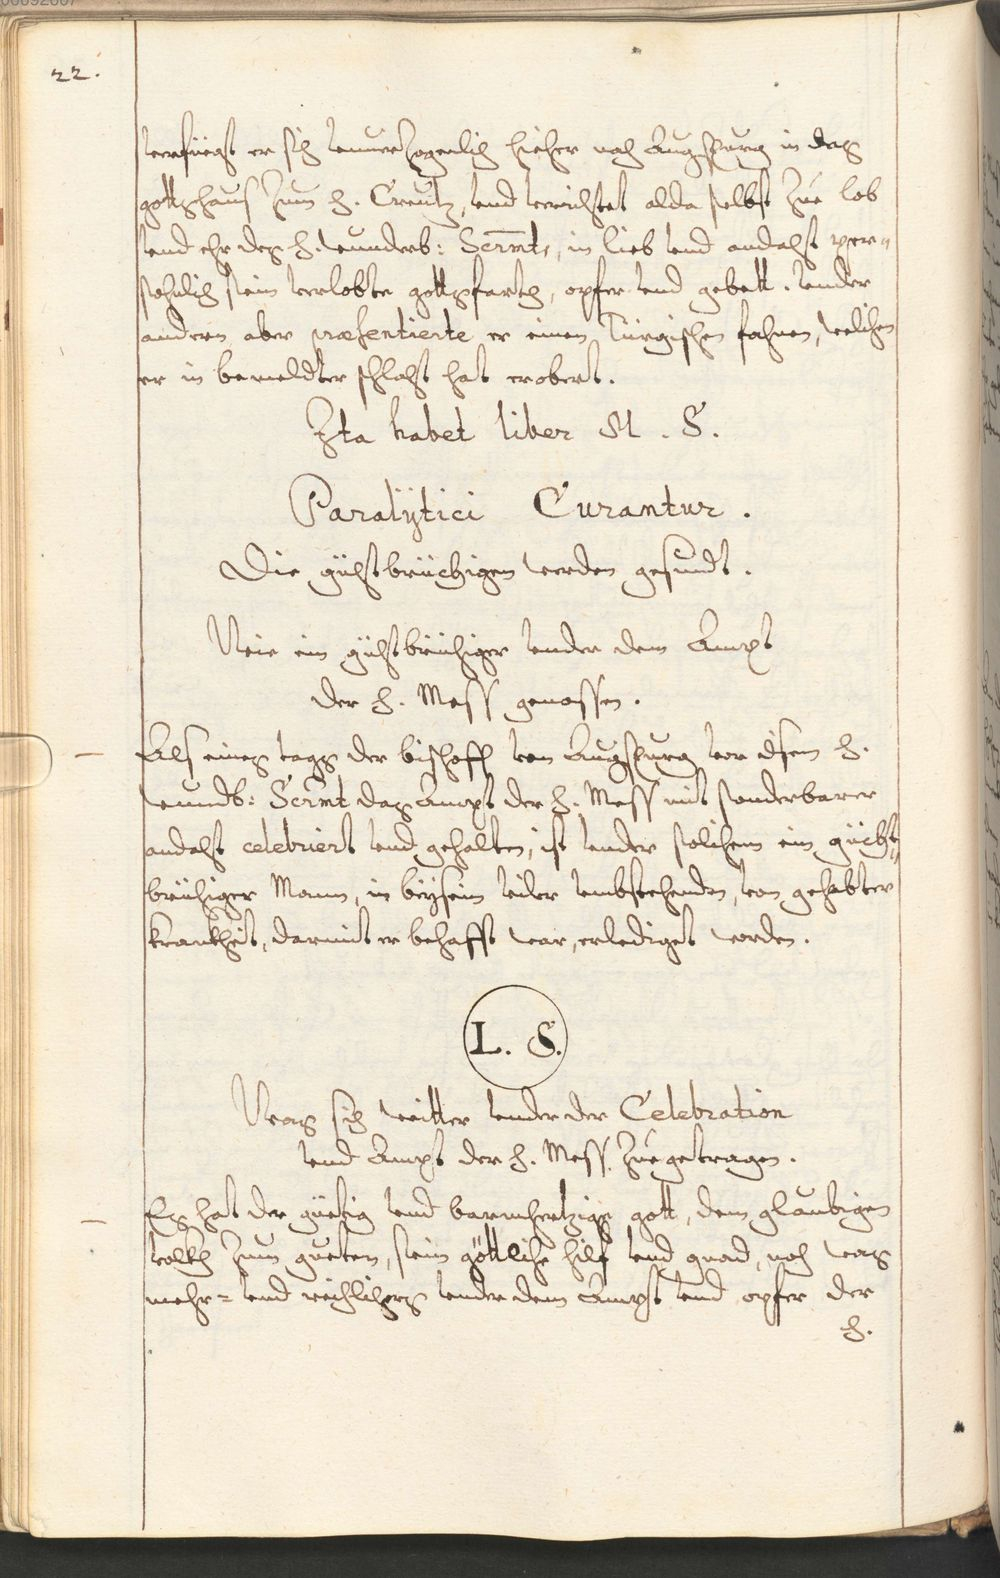 22.
verfüegt er sich unverzogenlich hieher nach Augspurg in das
gottshaus zum H. Creutz, und verrichtet alda selbst zue lob
und ehr des H. wunderb: Scrmts, in lieb und andacht per„
söhnlich sein verlobte gottsfarth, opfer und gebett. under
andern aber præsentierte er einen Türgischen fahnen, welchen
er in bemeldter schlacht hat erobert.
Ita habet liber M. S.
Paralÿtici Curantur.
Die gichtbrüchigen werden gesundt.
Wie ein gichtbrüchiger under dem Ampt
der H. Mess genossen.
Als eines tags der bischoff von Augspurg vor disem H.
wundb: Scrmt das Ampt der H. Mess mit sonderbarer
andacht celebriert und gehalten, ist under solichem ein gicht„
brüchiger Mann, in beÿsein viler umbstehenden, von gehabter
krankheit, darmit er behafft war, erlediget worden.
L. S.
Was sich weitter under der Celebration
und Ampt der H. Mess zuegetragen.
Es hat der güetig und barmhertzige gott, dem glaubigen
volckh zum gueten, sein göttliche hilf und gnad, noch was
mehr= und reichlichers under dem Ampt und opfer der
H.